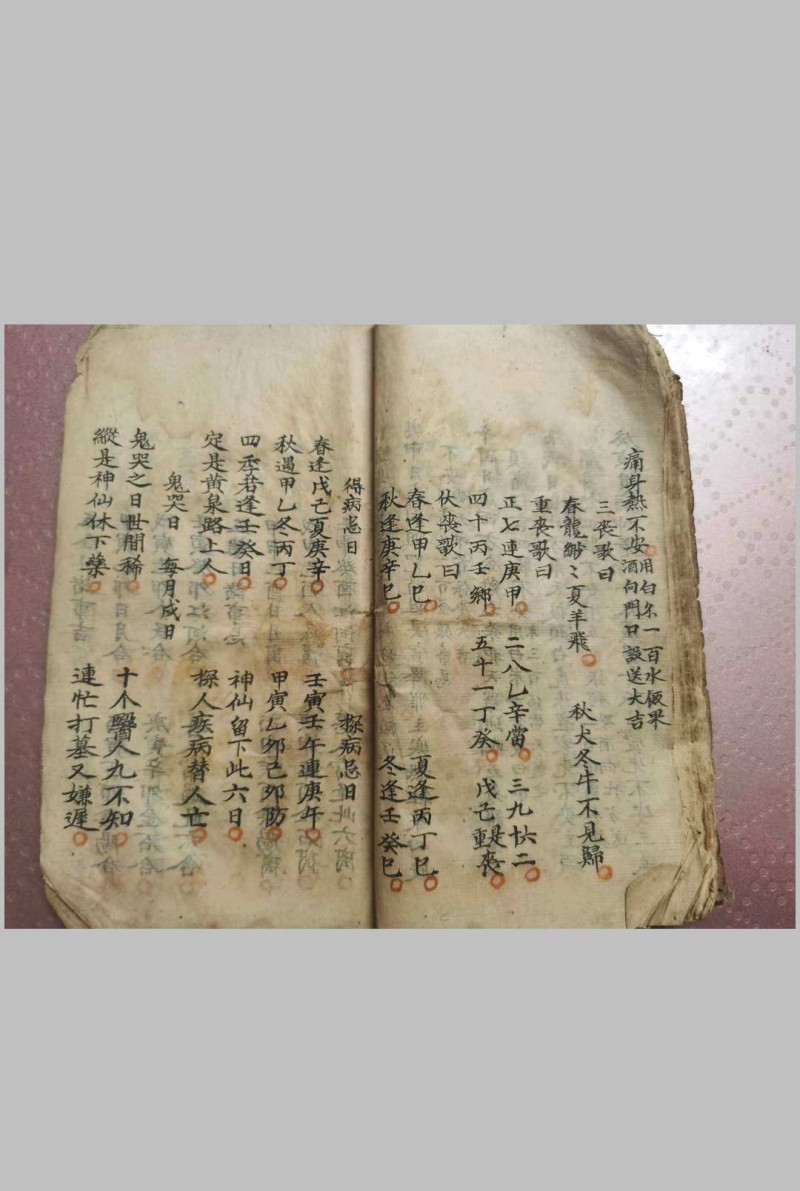 痛身熱不安 用白尔一百水飯果
酒向門口設送大吉
三喪歌曰
春龍緲〻夏羊飛 秋犬冬牛不見歸
重喪歌曰
正七連庚甲 二八乙辛當 三九二
四十丙壬鄉 五十一丁癸 戊己是重喪
伏喪歌曰
春逢甲乙巳 夏逢丙丁巳
秋逢庚辛巳 冬逢壬癸巳
得病忌日 探病忌日
春逢戊己夏庚辛 壬寅壬午連庚午
秋遇甲乙冬丙丁 甲寅乙卯己卯防
四季若逢壬癸日 神仙留下此六日
定是黄泉路上人 探人疾病替人亡
鬼哭日 每月戍日
鬼哭之日世間稀 十个醫人九不知
縱是神仙休下藥 連忙打墓又嫌遲